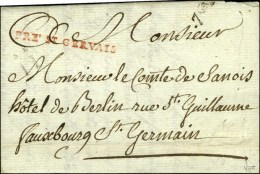 A Monsieur
PRÉ ST GERVAIS
Monsieur le Comte de Sanois
hôtel de Berlin rue St. Guillaume
fauxbourg St. Germain